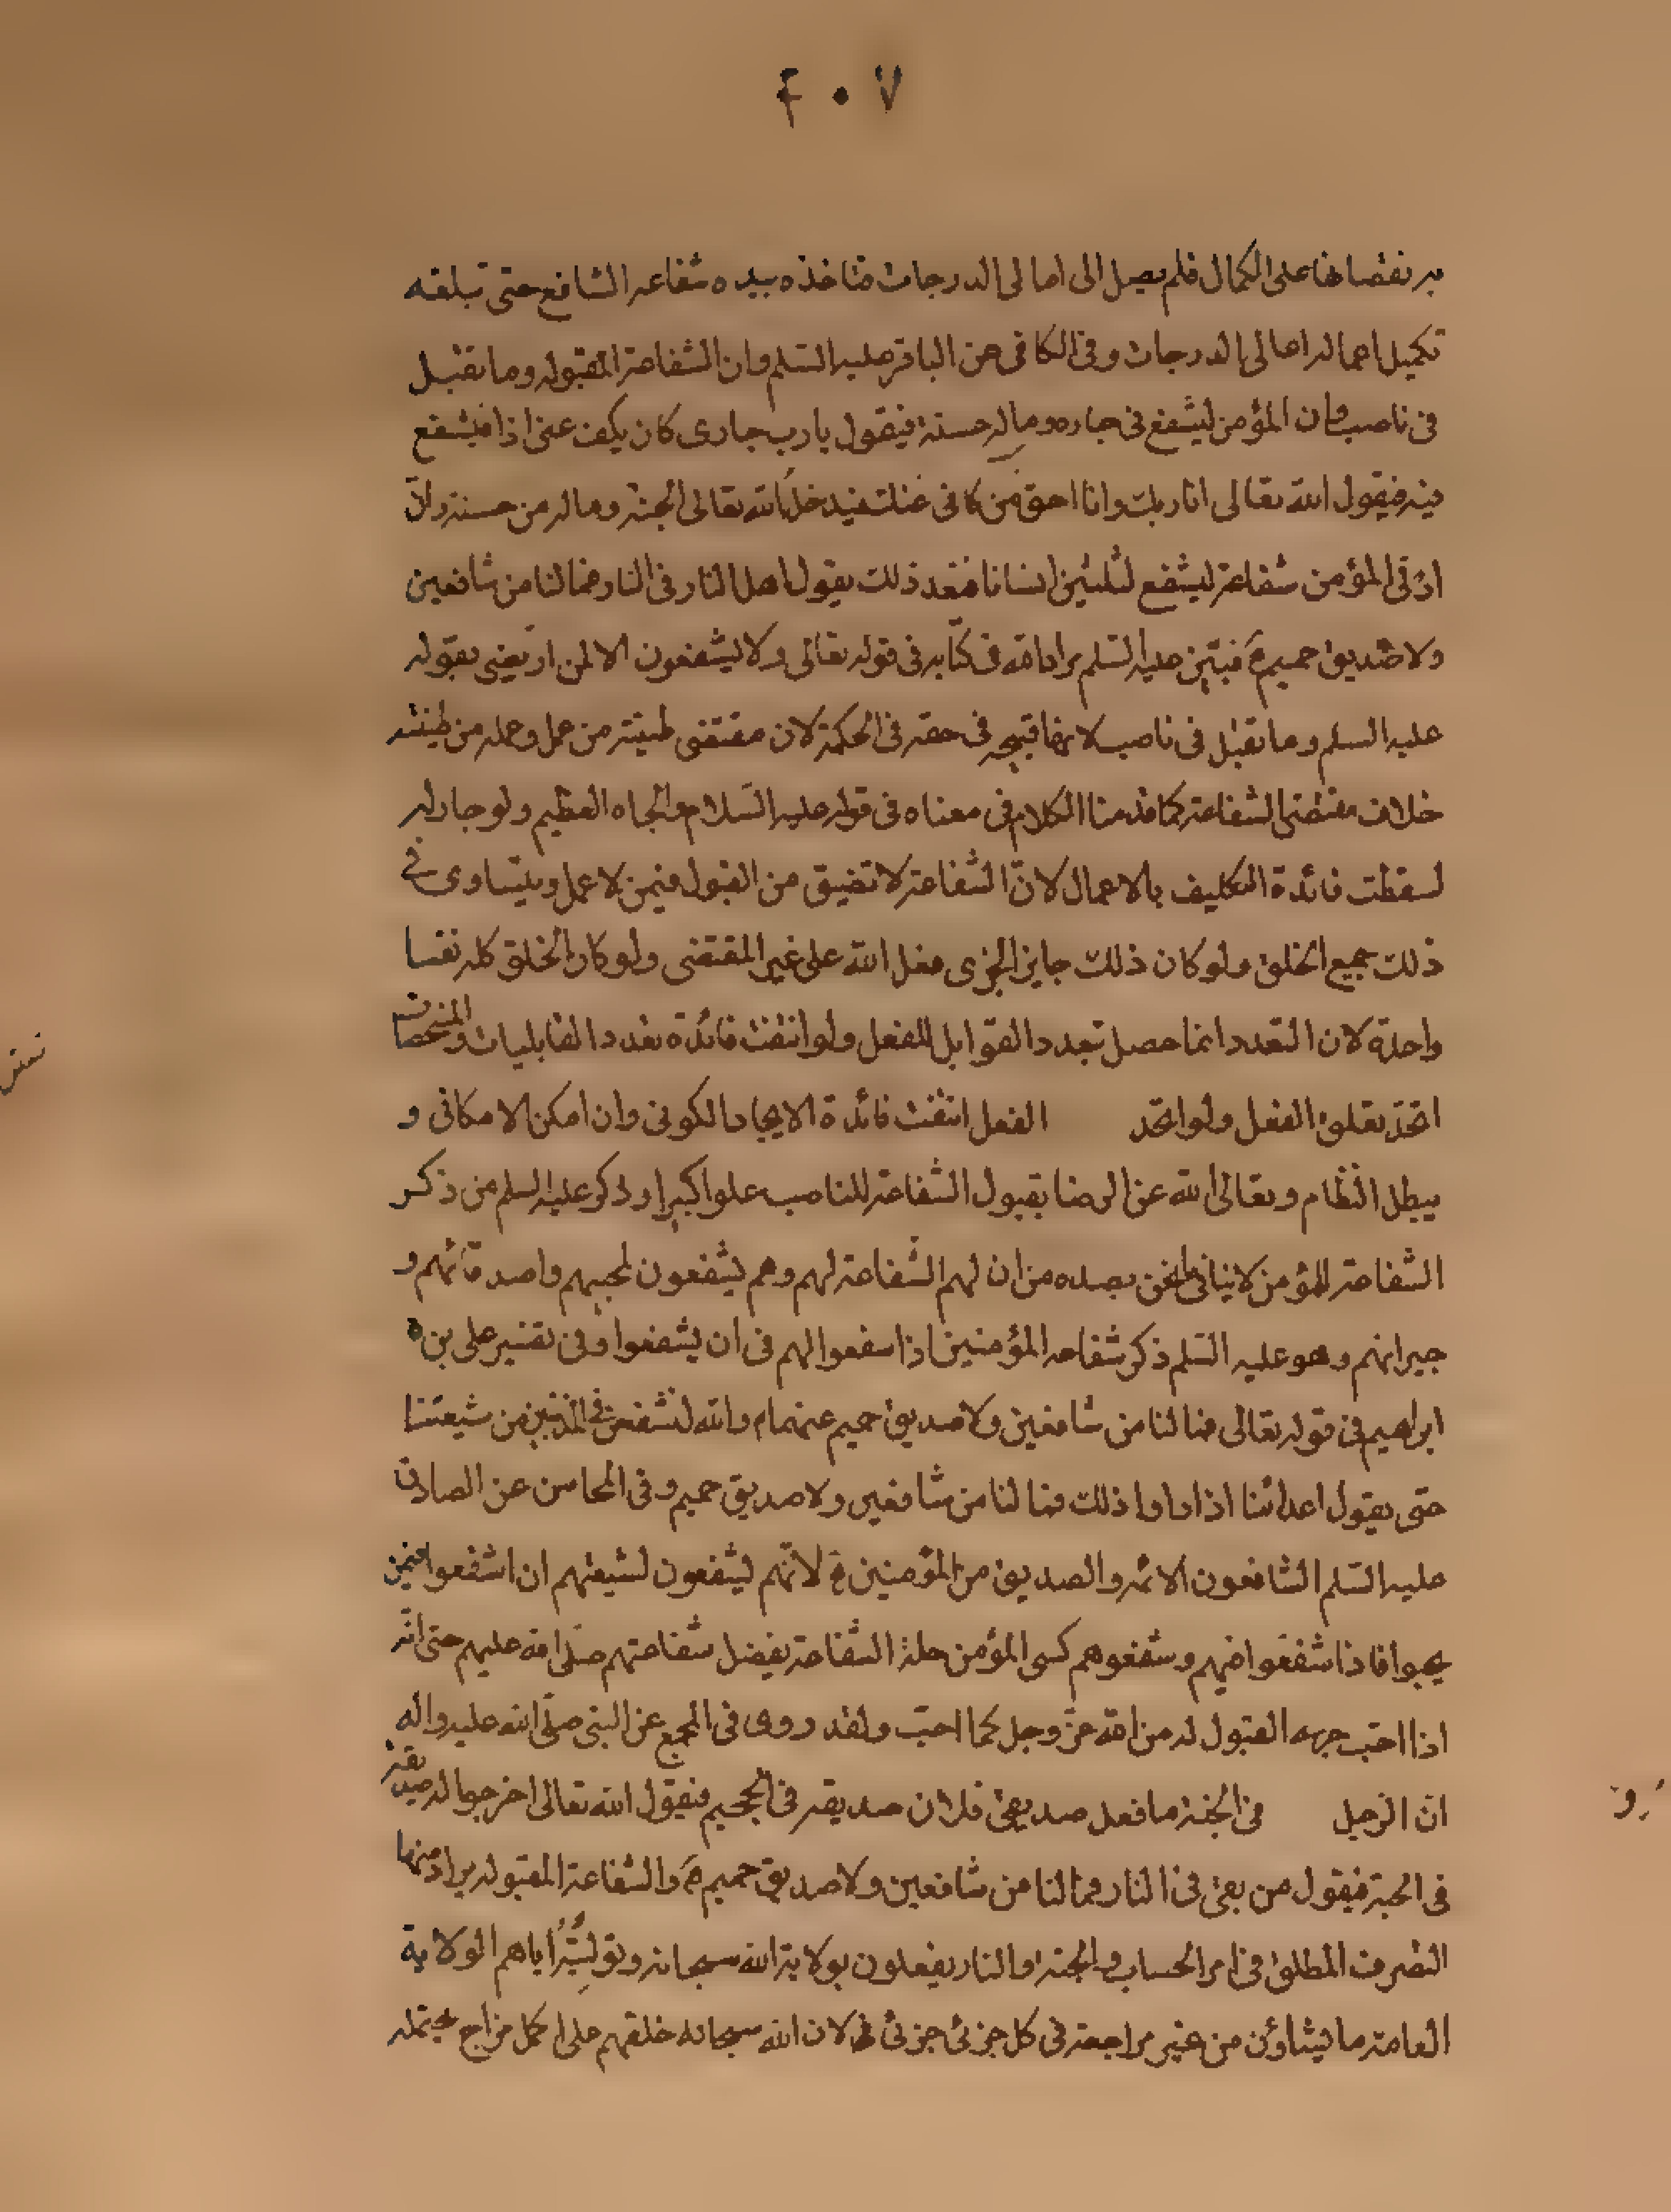 ۴۰۷
به نقصانها على الكمال فلم يصل الى اعالى الدرجات فتاخذه بيده شفاعه الشافع حتى تبلغه
تكميل اعماله اعالى الدرجات وفى الكافى عن الباقر عليه السلم وان الشفاعة لمقبوله وما تقبل
فى ناصب وان المؤمن ليشفع فى جاره وماله حسنة فيقول يارب جارى كان يكف عنى اذا فيشفع
فيه فيقول الله تعالى انا ربك وانا احق من كافى عنك فيدخله الله تعالى الجنة وماله من حسنة والّ
ادنى المؤمن شفاعة ليشفع لثلثين انسانا فعند ذلك يقول اهل النار فى النار فما لنا من شافعين
ولا صديق حميم فبيّن عليه السلم مراد الله فى كتابه فى قوله تعالى ولا يشفعون الا لمن ارتضى بقوله
عليه السلم وما تقبل فى ناصب لانها قبيحه فى حقه فى الحكمة لان مقتضى طينته من عمل وعمله من طينته
خلاف مقتضى الشفاعة كما قدمنا الكلام فى معناه فى قوله عليه السلام والجاه العظيم ولو جاز له
لسقطت فائدة التكليف بالاعمال لانّ الشفاعة لا تضيق من القبول فيمن لا عمل ويتساوى فى
ذلك جميع الخلق ولو كان ذلك جايز الجرى فعل الله على غير المقتضى ولو كان الخلق كله نفسا
واحدة لان التعدد انما حصل بتعدد القوابل للفعل ولو انتفت فائدة تعدد القابليات والمشخصات
اتحد تعلق الفعل ولو اتحد الفعل انتفت فائدة الايجاد الكونى وان امكن الامكانى و
يبطل النظام وتعالى الله عن الرضا بقبول الشفاعة للناصب علوا كبيرا وذكر عليه السلم من ذكر
الشفاعة للمؤمن لا ينافى ما نحن بصدده من ان لهم الشفاعة لهم وهم يشفعون لمحبيهم واصدقائهم و
جيرانهم وهو عليه السلم ذكر شفاعه المؤمنين اذا شفعوا لهم فى ان يشفعوا وفى تفسير على بن
ابراهيم فى قوله تعالى فما لنا من شافعين ولا صديق حميم عنهما م والله لنشفعن فى المذنبين من شيعتنا
حتى يقول اعدائنا اذا راوا ذلك فما لنا من شافعين ولا صديق حميم وفى المحاسن عن الصادق
عليه السلم الشافعون الائمه والصديق من المؤمنين لانهم يشفعون لشيعتهم ان اشفعوا فيمن
يحبوا فاذا شفعوا فيهم وشفعوهم كسى المؤمن حلة الشفاعة بفضل شفاعتهم صلى الله عليهم حتى انّه
اذا احب جره القبول له من الله عزّ وجل كما احبّ ولقد روى فى المجمع عن النبى صلّى الله عليه واله
انّ الرجل فى الجنة ما فعل صديقى فلان صديقه فى الجحيم فيقول الله تعالى اخرجوا له صديقه
فى الجنة فيقول من بقى فى النار فما لنا من شافعين ولا صديق حميم والشفاعة المقبوله يراد منها
التصرف المطلق فى امر الحساب والجنة والنار يفعلون بولاية الله سبحانه وتوليته اياهم الولاية
العامة ما يشاؤن من غير مراجعة فى كل جزئى جزئى لان الله سبحانه خلقهم على اكمل مزاج يحتمله